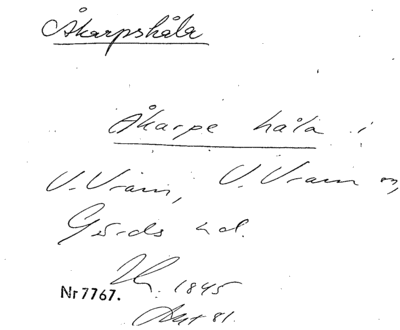 Åkarpshåla
Åkarpe håla i
V. Vram, V. Vram sn,
Gärds hd.
1845
Nr 7767.
81.